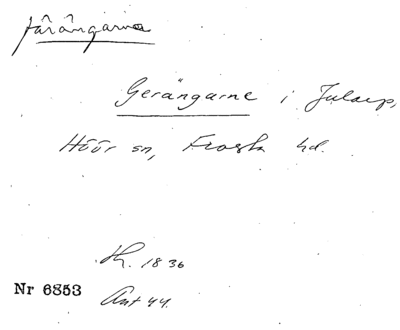 järängarna
Gerängarne i Julaep,
Höör sn, Frosta hd.
H. 1836
Nr 6853
Ant 44.